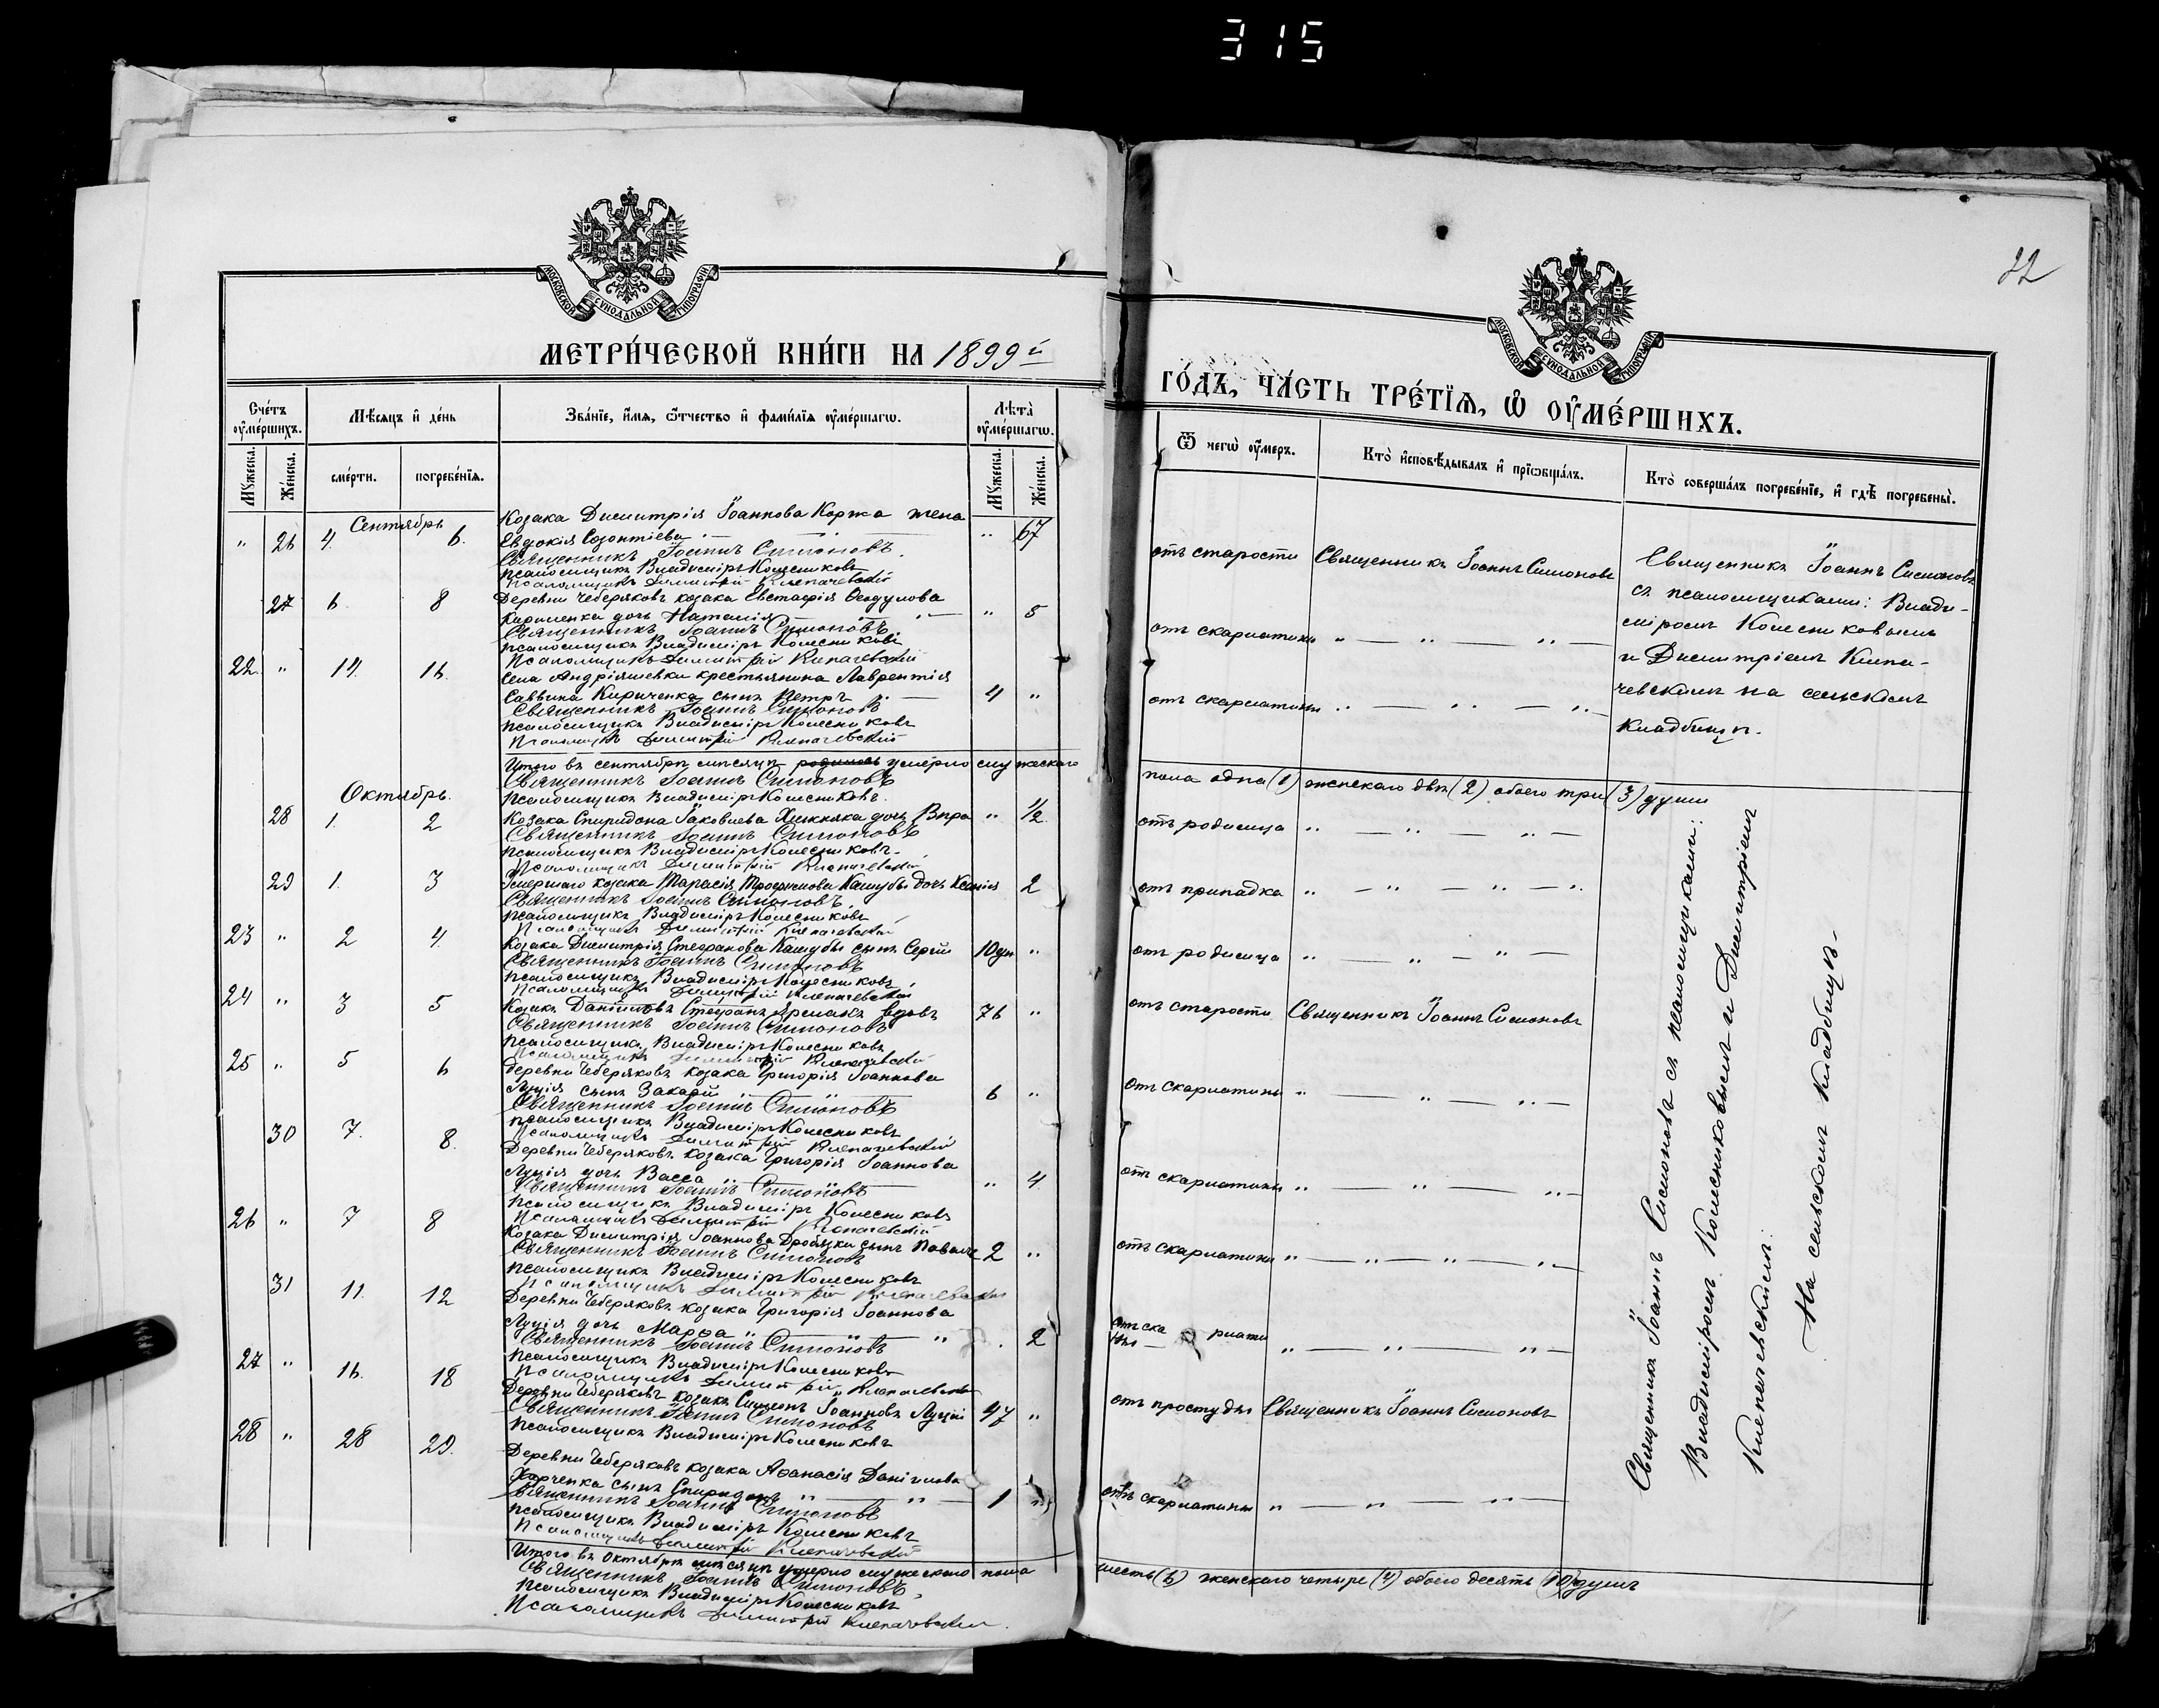 315
22
МОСКОВСКОЙ СѴНОДАЛЬНОЙ ТИПОГРАФІИ
МЕТРИ́ЧЕСКОЙ КНИ́ГИ НА 1899й
Сче́тъ оумéршихъ.
Мѣсяцъ и де́нь
Зва́ніе, и́мя, ѿтчество и фами́лія оуме́ршагѡ.
Лѣта̀ оуме́ршагѡ.
Мужеска.
Же́нска.
сме́рти.
погребе́нія.
Мужеска.
Же́нска.
Сентябрь
" 26 4. 6. Козака Димитрія Іоаннова Коржа жена
Евдокія Созонтіева " 67
Священникъ Іоаннъ Симоновъ
Псаломщикъ Владиміръ Колесниковъ
Псаломщикъ Димитрій Клепачевскій
27 6 8 Деревни Чеберяковъ козака Евстафія Ѳеодулова
дочь Наталія " 5
Священникъ Іоаннъ Симоновъ
Псаломщикъ Владиміръ Колесниковъ
Псаломщикъ Димитрій Клепачевскій
22. " 14. 16. Села Андріяшевки крестьянина Лаврентія
Саввина Кириченка сынъ Петръ 4 "
Священникъ Іоаннъ Симоновъ
Псаломщикъ Владиміръ Колесниковъ
Псаломщикъ Димитрій Клепачевскій
Итого въ сентябрѣ мѣсяцѣ умерло мужескаго
Священникъ Іоаннъ Симоновъ
Псаломщикъ Владиміръ Колесниковъ
Октябрь.
28 1. 2 Козака Спиридона Іаковлева Хижняка дочь Вѣра " 1/2
Священникъ Іоаннъ Симоновъ
Псаломщикъ Владиміръ Колесниковъ
Псаломщикъ Димитрій Клепачевскій
29 1. 3 Умершаго козака Тарасія Трофимова Кашубы дочь Ксенія 2
Священникъ Іоаннъ Симоновъ
Псаломщикъ Владиміръ Колесниковъ
Псаломщикъ Димитрій Клепачевскій
23 " 2 4. Козака Димитрія Стефанова Кашубы сынъ Сергій 10 дн "
Священникъ Іоаннъ Симоновъ
Псаломщикъ Владиміръ Колесниковъ
Псаломщикъ Димитрій Клепачевскій
24 " 3 5 Козакъ Стефанъ вдовъ 76 "
Священникъ Іоаннъ Симоновъ
Псаломщикъ Владиміръ Колесниковъ
Псаломщикъ Димитрій Клепачевскій
25 " 5 6 Деревни Чеберяковъ козака Григорія Іоаннова
Луція сынъ Захарій 6 "
Священникъ Іоаннъ Симоновъ
Псаломщикъ Владиміръ Колесниковъ
Псаломщикъ Димитрій Клепачевскій
30 7. 8. Деревни Чеберяковъ козака Григорія Іоаннова
Луція дочь Васса " 4
Священникъ Іоаннъ Симоновъ
Псаломщикъ Владиміръ Колесниковъ
Псаломщикъ Димитрій Клепачевскій
26 " 7 8 Козака Димитрія Іоаннова Дробязки сынъ Павелъ 2 "
Священникъ Іоаннъ Симоновъ
Псаломщикъ Владиміръ Колесниковъ
Псаломщикъ Димитрій Клепачевскій
31 11. 12 Деревни Чеберяковъ козака Григорія Іоаннова
Луція дочь Марѳа " " . 2
Священникъ Іоаннъ Симоновъ
Псаломщикъ Владиміръ Колесниковъ
Псаломщикъ Димитрій Клепачевскій
27 " 16. 18 Деревни Чеберяковъ козакъ Симеонъ Іоанновъ Луцій 47 "
Священникъ Іоаннъ Симоновъ
Псаломщикъ Владиміръ Колесниковъ
28 " 28 29. Деревни Чеберяковъ козака Аѳанасія Даніилова
Харченка сынъ Спиридонъ " " 1 "
Священникъ Іоаннъ Симоновъ
Псаломщикъ Владиміръ Колесниковъ
Псаломщикъ Димитрій Клепачевскій
Итого въ Октябрѣ мѣсяцѣ умерло мужескаго пола
Священникъ Іоаннъ Симоновъ
Псаломщикъ Владиміръ Колесниковъ
Псаломщикъ Димитрій Клепачевскій
МОСКОВСКОЙ СѴНОДАЛЬНОЙ ТИПОГРАФІИ
ГО́ДЪ, ЧА́СТЬ ТРЕ́ТІЯ, Ѡ ОУМЕ́РШИХЪ.
Ѿ чегѡ̀ оу́меръ.
Кто̀ исповѣ́дывалъ и пріѡбща́лъ.
Кто̀ соверша́лъ погребе́ніе, и гдѣ̀ погребены̀.
отъ старости Священникъ Іоаннъ Симоновъ
отъ скарлатины " " "
отъ скарлатины " " "
Священникъ Іоаннъ Симоновъ
съ псаломщиками: Влади-
міромъ Колесниковымъ
и Димитріемъ Клепа-
чевскимъ на сельскомъ
кладбищѣ.
пола одна (1) женскаго двѣ (2) обоего три (3) души
отъ родимца " " "
отъ припадка " " " "
отъ родимца " " "
отъ старости Священникъ Іоаннъ Симоновъ
отъ скарлатины " " "
отъ скарлатины " " "
отъ скарлатины " " " "
отъ скарлатины " " "
отъ простуды Священникъ Іоаннъ Симоновъ
отъ скарлатины " " "
Священникъ Іоаннъ Симоновъ съ псаломщиками:
Владиміромъ Колесниковымъ и Димитріемъ
Клепачевскимъ.
На сельскомъ кладбищѣ.
шесть (6) женскаго четыре (4) обоего десять (10) душъ